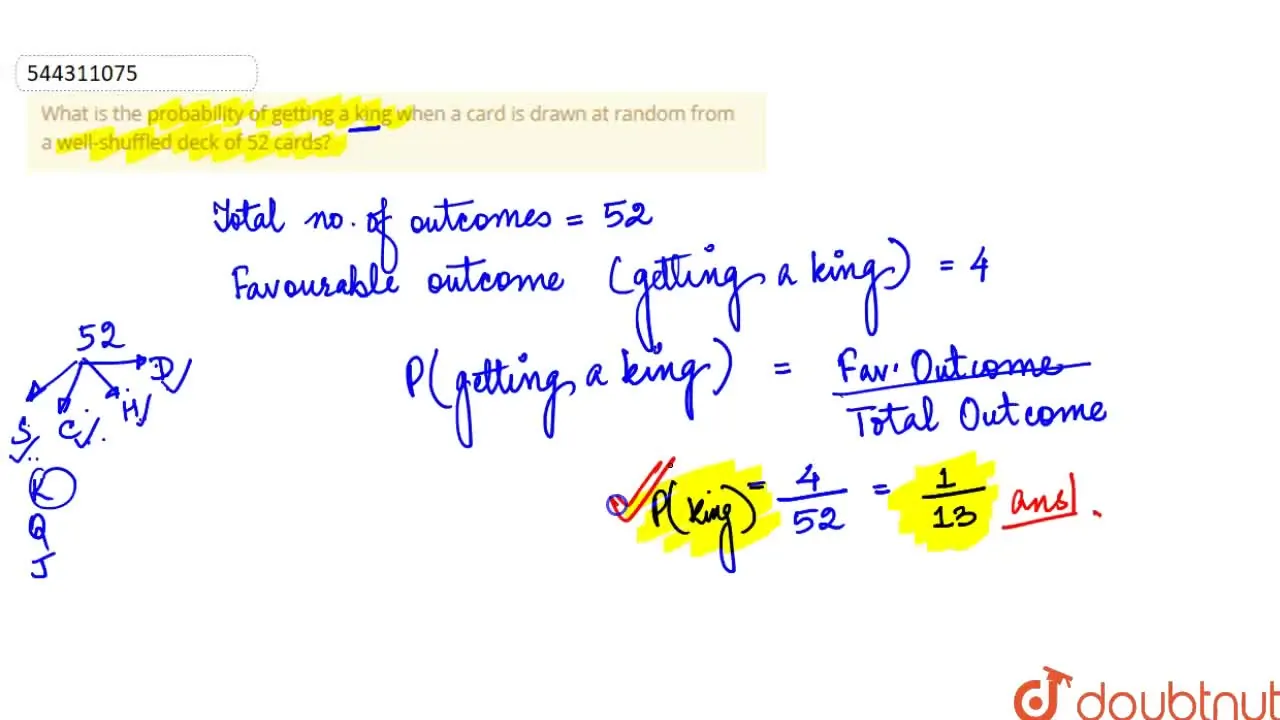 544311075
What is the probability of getting a king when a card is drawn at random from
a well-shuffled deck of 52 cards?
Total no. of outcomes = 52
Favourable outcome (getting a king) = 4
52
S C H D
K
Q
J
P(getting a king) = Fav. Outcome
Total Outcome
P(king) = 4/52 = 1/13 ans.
doubtnut